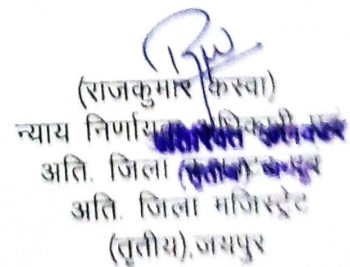 (राजकुमार कस्वा)
न्याय निर्णायक अधिकारी एवं
अति. जिला
अति. जिला मजिस्ट्रेट
(तृतीय),जयपुर